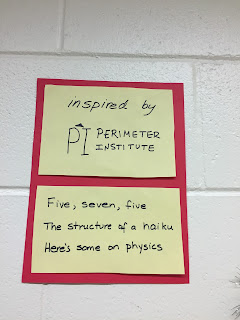 inspired by
PI PERIMETER
INSTITUTE
Five, seven, five
The structure of a haiku
Here's some on physics